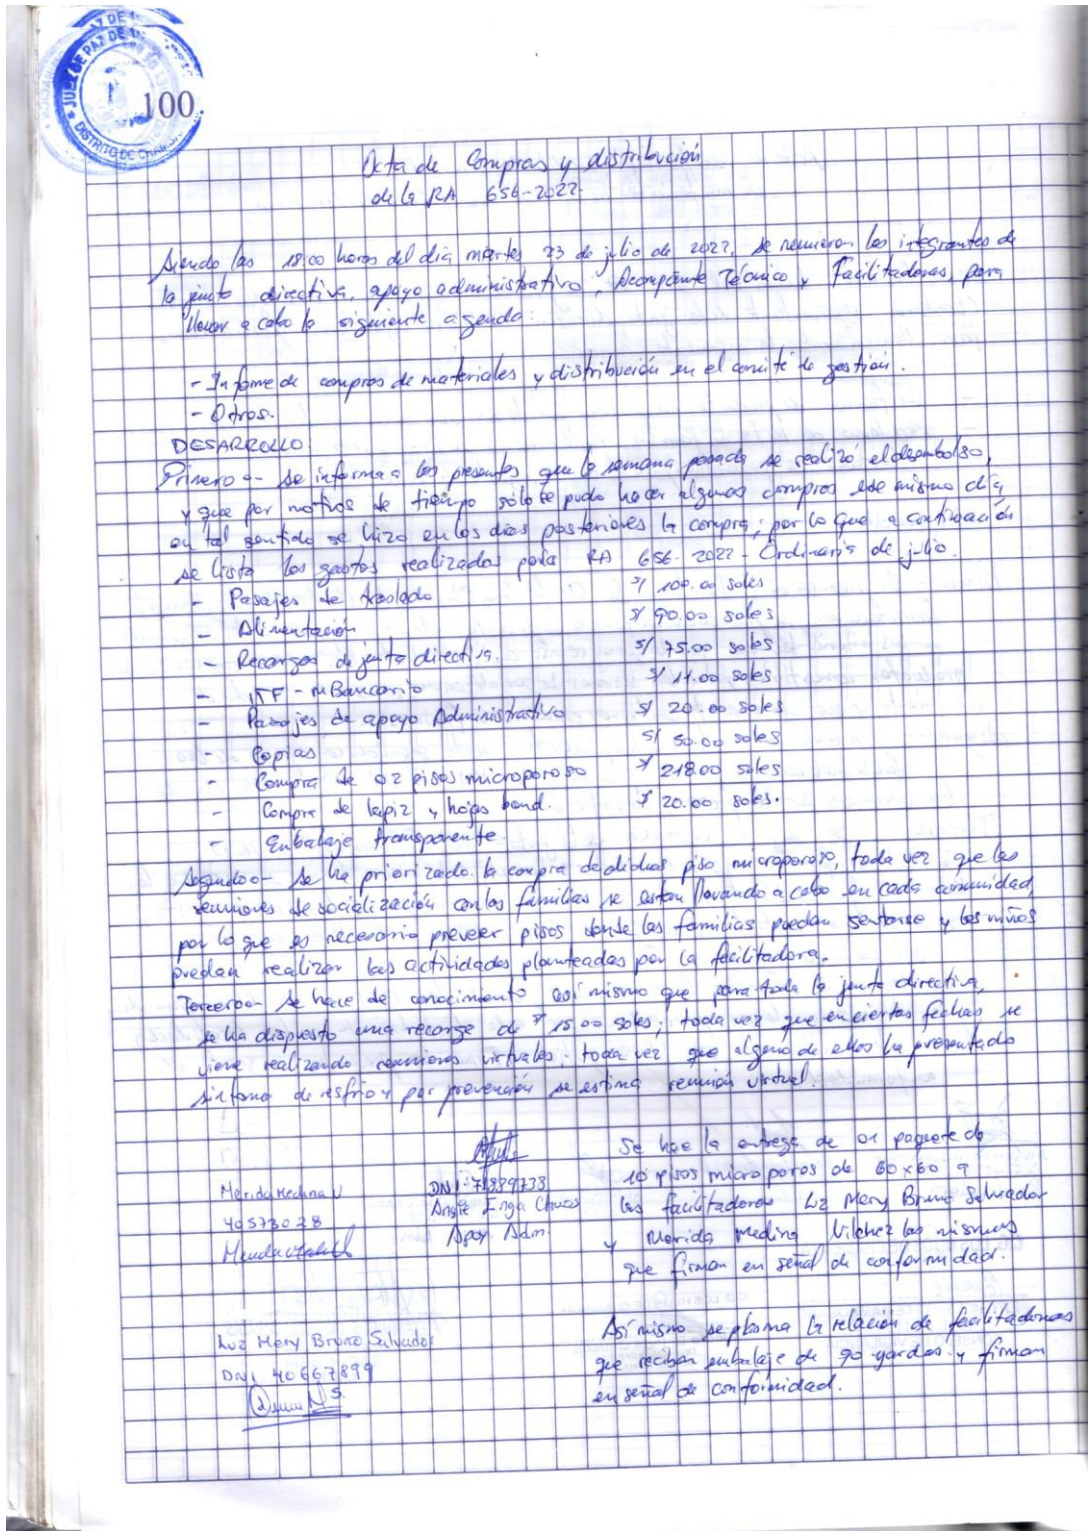 JUEZ DE PAZ DE
DISTRITO DE
100
Acta de Compras y distribución
de la RA 656-2022.
Siendo las 18:00 horas del día martes 23 de julio de 2022, se reunieron los integrantes de
la junta directiva, apoyo administrativo, Acompante Técnico y Facilitadoras, para
llevar a cabo la siguiente agenda:
- Informe de compras de materiales y distribución en el comité de gestión.
- Otros.
DESARROLLO
Primero.- Se informa a los presentes que la semana pasada se realizó el desembolso,
y que por motivos de tiempo sólo se pudo hacer algunas compras ese mismo día,
en tal sentido se hizo en los días posteriores la compra; por lo que a continuación
se lista los gastos realizados para RA 656-2022 - Ordinaria de julio.
- Pasajes de traslado S/ 100.00 soles
- Alimentación S/ 90.00 soles
- Recargas de junta directiva. S/ 75.00 soles
- ITF - M Bancario S/ 11.00 soles
- Pasajes de apoyo Administrativo S/ 20.00 soles
- Copias S/ 50.00 soles
- Compra de 02 pisos microporoso S/ 218.00 soles
- Compra de lapiz y hojas bond. S/ 20.00 soles.
- Embalaje transparente.
Segundo.- Se ha priorizado la compra de dichos piso microporoso, toda vez que las
reuniones de socialización con las familias se estan llevando a cabo en cada comunidad
por lo que es necesario preveer pisos donde las familias puedan sentarse y los niños
puedan realizar las actividades planteadas por la facilitadora.
Tercero.- Se hace de conocimiento así mismo que para toda la junta directiva,
se ha dispuesto una recarga de S/ 15.00 soles; toda vez que en ciertas fechas se
viene realizando reuniones virtuales; toda vez que alguno de ellos ha presentado
sintoma de resfrio y por prevención se estima reunión virtual.
Se hace la entrega de 01 paquete de
10 pisos microporos de 60x60 a
las facilitadoras Luz Mery Bruno Salvador
y Merida Medina Vilchez las mismas
que firman en señal de conformidad.
Merida Medina V
40573028
DNI: 71889738
Angie Inga Chucos
Apoy. Adm.
Así mismo se plasma la relación de facilitadoras
que reciben embalaje de 90 yardas y firman
en señal de conformidad.
Luz Mery Bruno Salvador
DNI 40667899